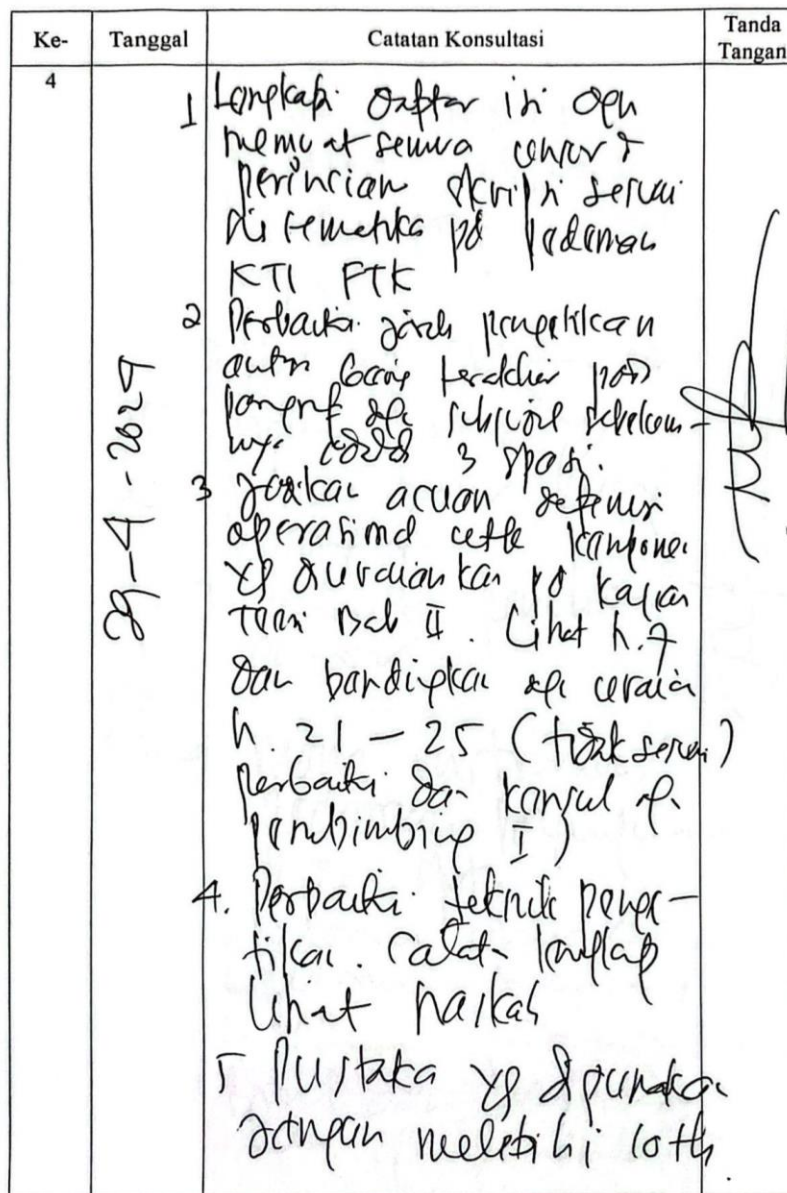 Ke- Tanggal Catatan Konsultasi Tanda Tangan
4
29-4-2024
1 Lengkapi daftar isi dgn
memuat semua unsur &
perincian skripsi sesuai
sistematika pd pedoman
KTI FTK
2 Perbaiki jarak pengetikan
antr baris terakhir pd
paragraf dgn subjudul sebelum-
nya 3 spasi.
3 Jadikan acuan definisi
operasional komponen
yg diuraikan pd kajian
Teori Bab II. Lihat h. 7
dan bandingkan dgn uraian
h. 21 - 25 (tidak sesuai)
perbaiki dan konsul dgn
pembimbing I)
4. Perbaiki teknik penge-
tikan. Catatan lengkap
lihat naskah
5 Pustaka yg digunakan
jangan melebihi 10 th